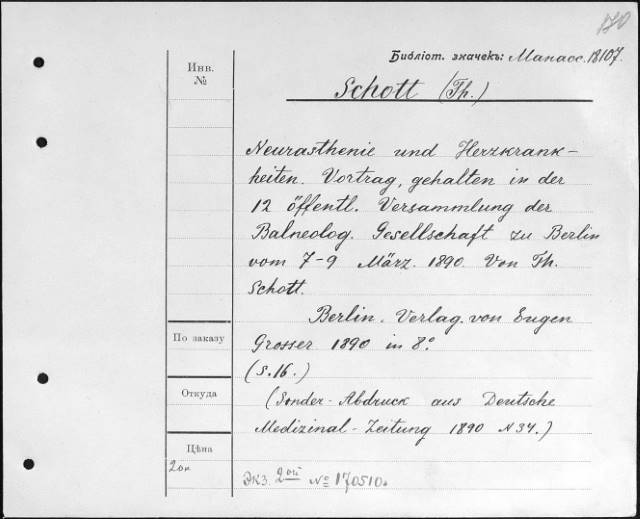 170
Библіот. значекъ: Манасс. 18107.
Инв.
№
Schott (Th.)
Neurasthenie und Herzkrank-
heiten. Vortrag, gehalten in der
12 öffentl. Versammlung der
Balneolog. Gesellschaft zu Berlin
vom 7-9 März. 1890. Von Th.
Schott.
Berlin. Verlag. von Eugen
Grosser 1890 in 8.°
(S.16.)
(Sonder-Abdruck aus Deutsche
Medizinal-Zeitung 1890 N 34.)
По заказу
Откуда
Цѣна
20к
Экз. 2ой № 170510.